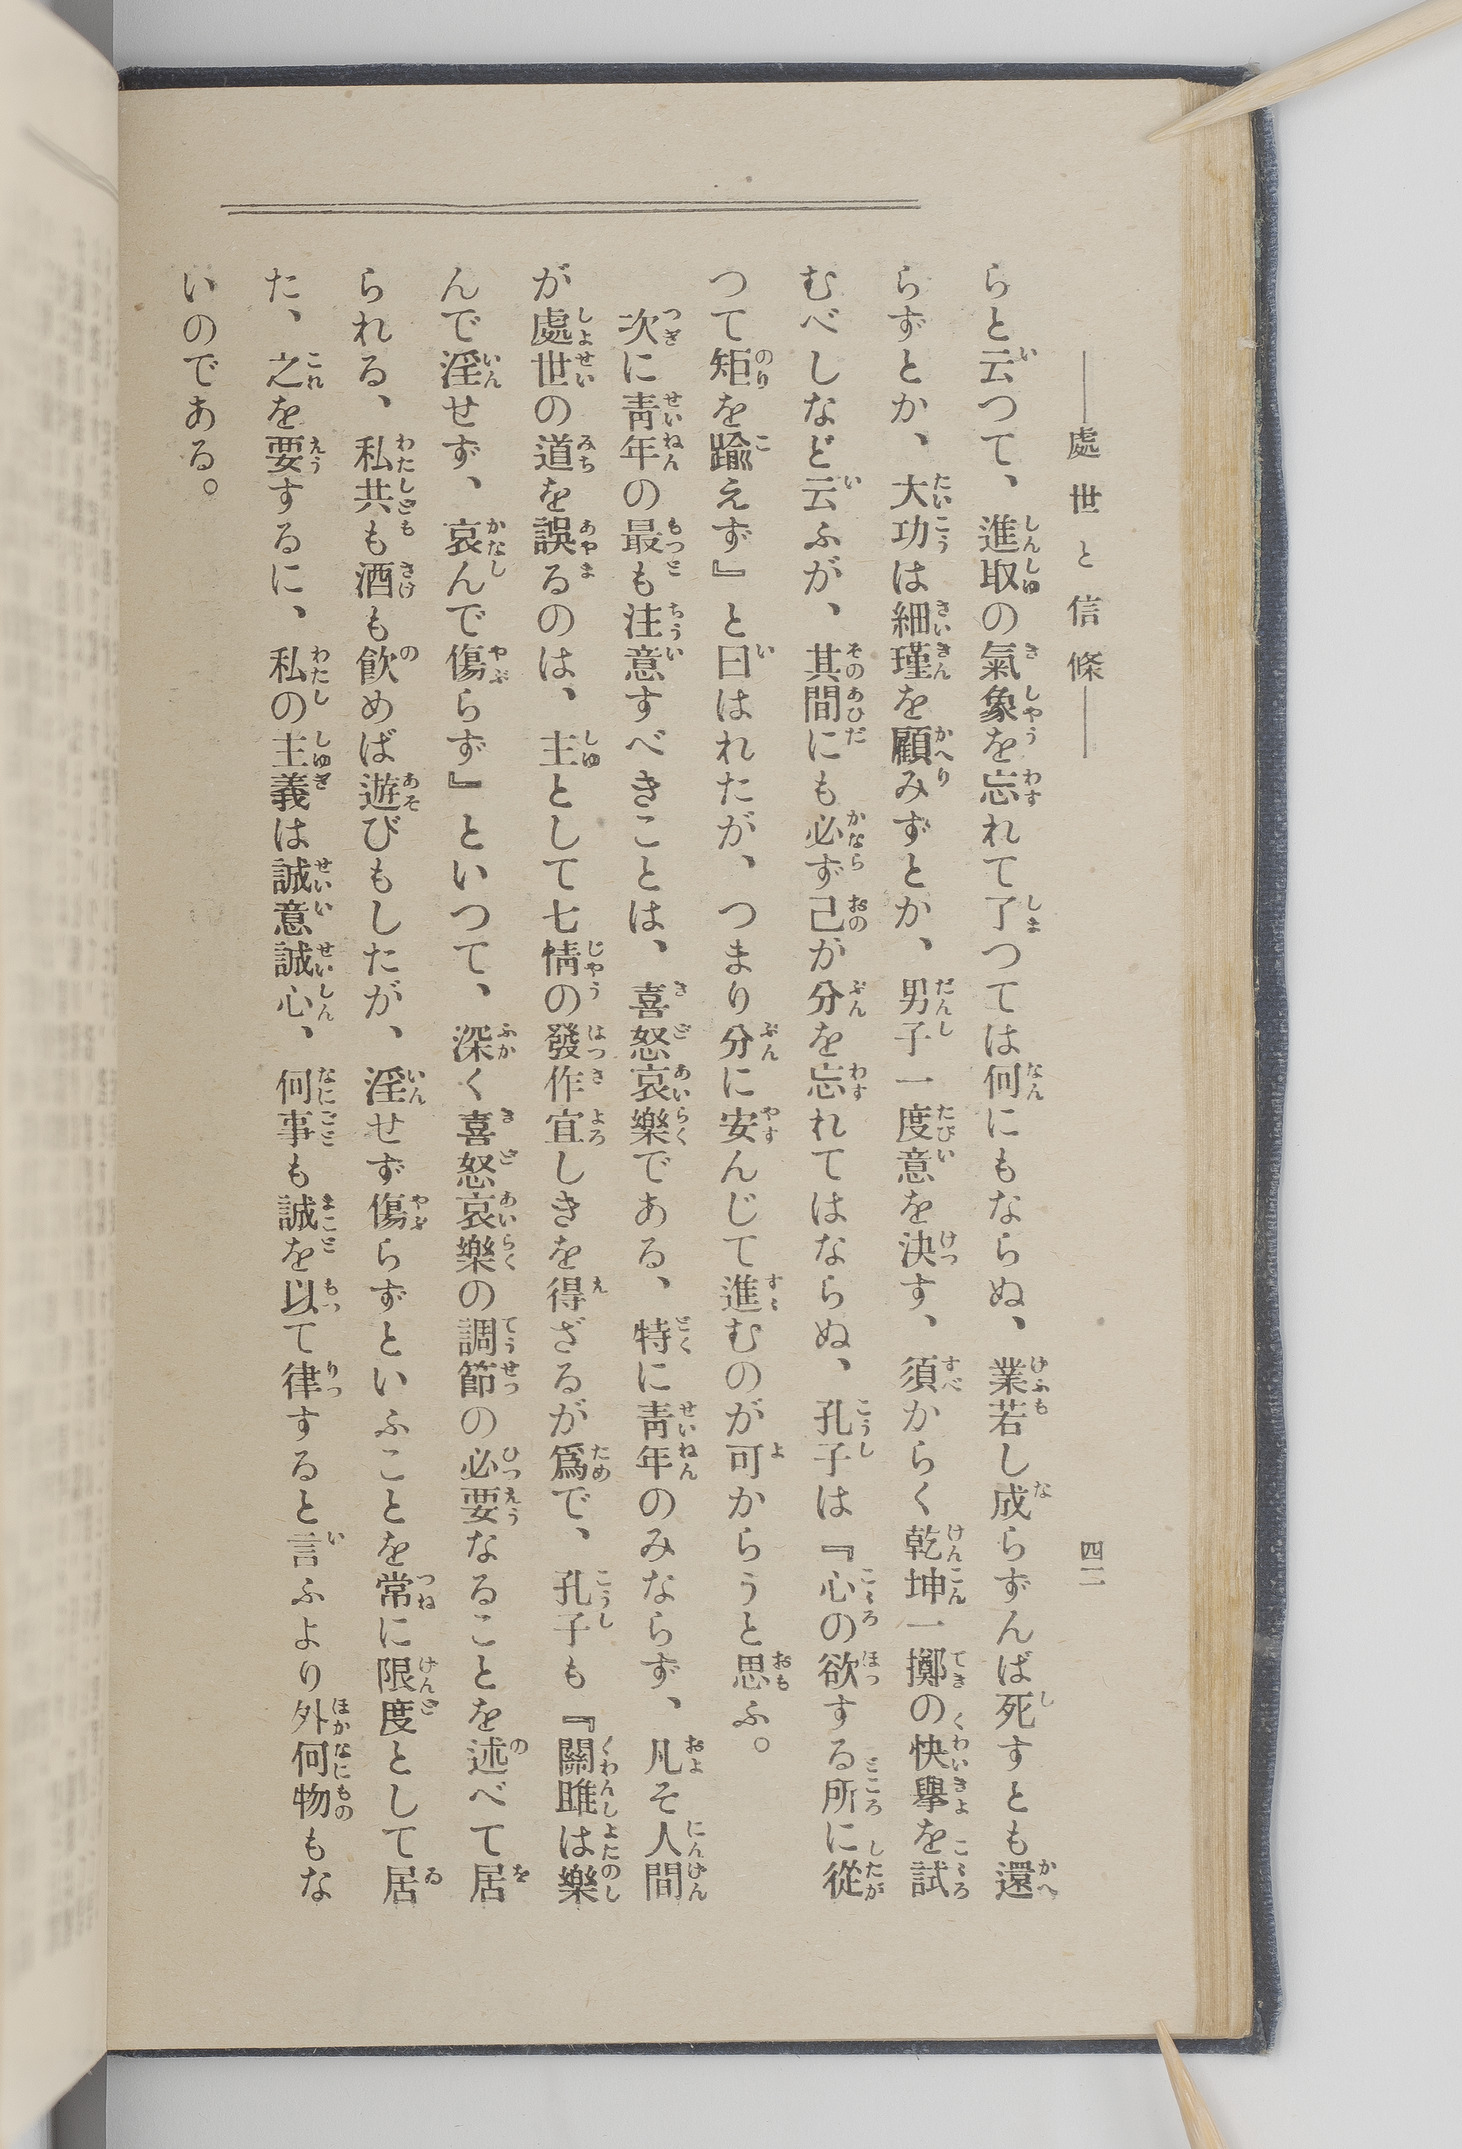 ――處世と信條――
四二
らと云つて、進取の氣象を忘れて了つては何にもならぬ、業若し成らずんば死すとも還
らずとか、大功は細瑾を顧みずとか、男子一度意を決す、須からく乾坤一擲の快擧を試
むべしなど云ふが、其間にも必ず己が分を忘れてはならぬ、孔子は『心の欲する所に從
つて矩を踰えず』と曰はれたが、つまり分に安んじて進むのが可からうと思ふ。
次に靑年の最も注意すべきことは、喜怒哀樂である、特に靑年のみならず、凡そ人間
が處世の道を誤るのは、主として七情の發作宜しきを得ざるが爲で、孔子も『關雎は樂
んで淫せず、哀んで傷らず』といつて、深く喜怒哀樂の調節の必要なることを述べて居
られる、私共も酒も飮めば遊びもしたが、淫せず傷らずといふことを常に限度として居
た、之を要するに、私の主義は誠意誠心、何事も誠を以て律すると言ふより外何物もな
いのである。